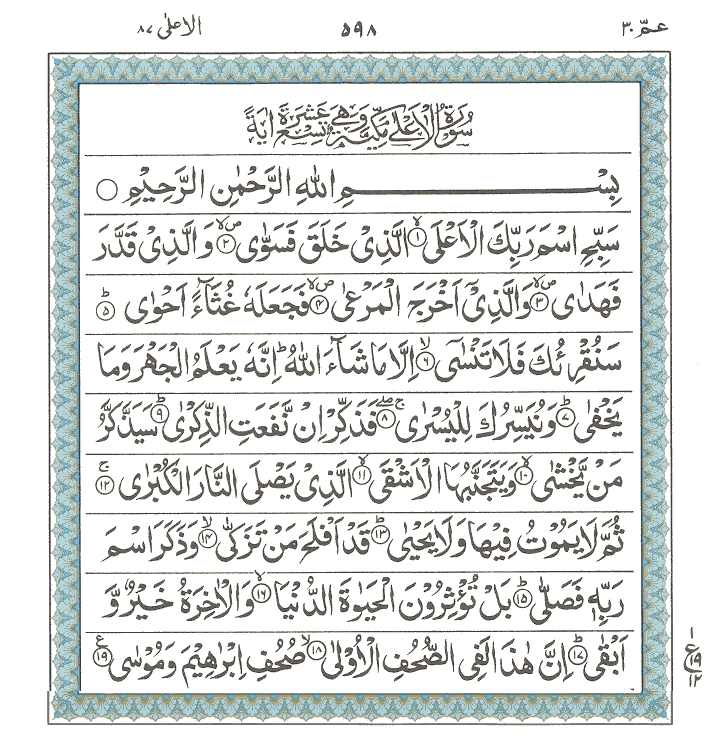 عمّ ٣٠ ٥٩٨ الاعلىٰ ٨٧
سُوْرَةُ الْاَعْلٰى مَكِّيَّةٌ وَّهِيَ تِسْعَ عَشْرَةَ اٰيَةً
بِسْمِ اللّٰهِ الرَّحْمٰنِ الرَّحِيْمِ ○
سَبِّحِ اسْمَ رَبِّكَ الْاَعْلَى ۙ﴿١﴾ الَّذِىْ خَلَقَ فَسَوّٰى ۪ۙ﴿٢﴾ وَالَّذِىْ قَدَّرَ
فَهَدٰى ۪ۙ﴿٣﴾ وَالَّذِىْۤ اَخْرَجَ الْمَرْعٰى ۪ۙ﴿٤﴾ فَجَعَلَهٗ غُثَآءً اَحْوٰى ؕ﴿٥﴾
سَنُقْرِئُكَ فَلَا تَنْسٰٓى ۙ﴿٦﴾ اِلَّا مَا شَآءَ اللّٰهُ ؕ اِنَّهٗ يَعْلَمُ الْجَهْرَ وَمَا
يَخْفٰى ؕ﴿٧﴾ وَنُيَسِّرُكَ لِلْيُسْرٰى ۚۖ﴿٨﴾ فَذَكِّرْ اِنْ نَّفَعَتِ الذِّكْرٰى ؕ﴿٩﴾ سَيَذَّكَّرُ
مَنْ يَّخْشٰى ۙ﴿١٠﴾ وَيَتَجَنَّبُهَا الْاَشْقَى ۙ﴿١١﴾ الَّذِىْ يَصْلَى النَّارَ الْكُبْرٰى ۚ﴿١٢﴾
ثُمَّ لَا يَمُوْتُ فِيْهَا وَلَا يَحْيٰى ؕ﴿١٣﴾ قَدْ اَفْلَحَ مَنْ تَزَكّٰى ۙ﴿١٤﴾ وَذَكَرَ اسْمَ
رَبِّهٖ فَصَلّٰى ؕ﴿١٥﴾ بَلْ تُؤْثِرُوْنَ الْحَيٰوةَ الدُّنْيَا ۖ﴿١٦﴾ وَالْاٰخِرَةُ خَيْرٌ وَّ
اَبْقٰى ؕ﴿١٧﴾ اِنَّ هٰذَا لَفِى الصُّحُفِ الْاُوْلٰى ۙ﴿١٨﴾ صُحُفِ اِبْرٰهِيْمَ وَمُوْسٰى ﴿١٩﴾ ع
١
ع ١٩
١٢